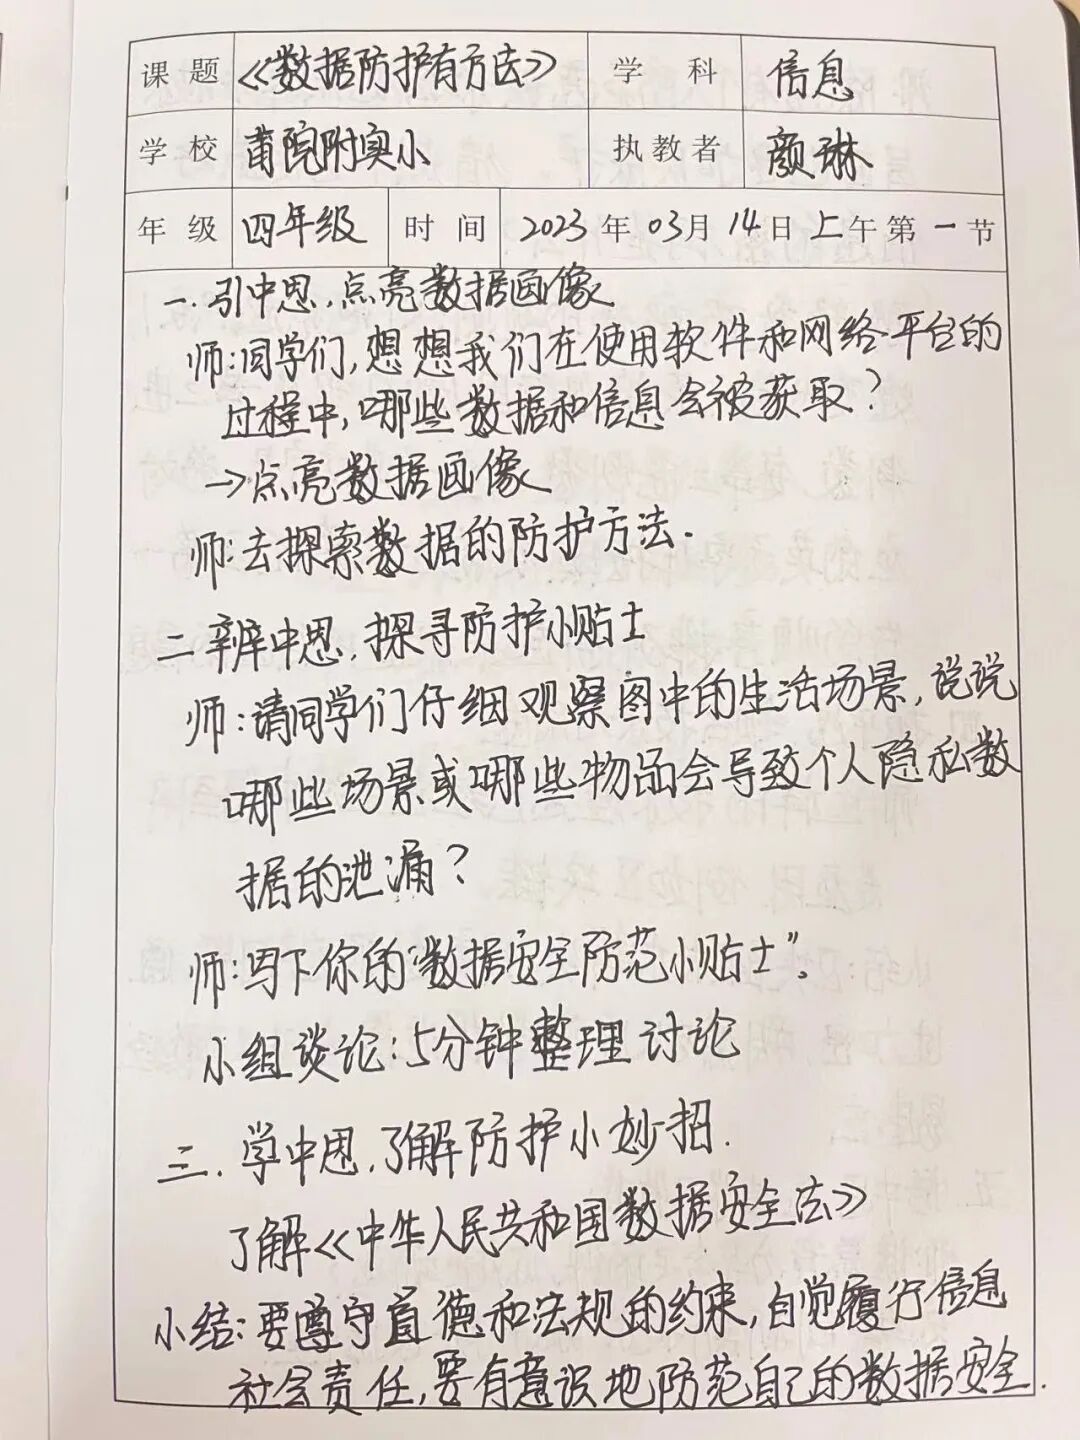 课题 《数据防护有方法》 学科 信息
学校 莆院附实小 执教者 颜琳
年级 四年级 时间 2023年03月14日上午第一节
一. 引中思,点亮数据画像
师:同学们,想想我们在使用软件和网络平台的
过程中,哪些数据和信息会被获取?
→点亮数据画像
师:去探索数据的防护方法.
二 辨中思,探寻防护小贴士
师:请同学们仔细观察图中的生活场景,说说
哪些场景或哪些物品会导致个人隐私数
据的泄漏?
师:写下你的“数据安全防范小贴士”。
小组谈论:5分钟整理讨论
三. 学中思,了解防护小妙招.
了解《中华人民共和国数据安全法》
小结:要遵守道德和法规的约束,自觉履行信息
社会责任,要有意识地防范自己的数据安全.